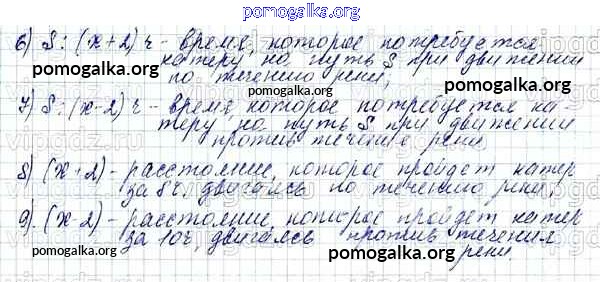 pomogalka.org
6) S : (x + 2) ч - время, которое потребуется
катеру на путь S при движении
по течению реки;
pomogalka.org
7) S : (x - 2) ч - время, которое потребуется ка-
теру на путь S при движении
против течение реки
8) (x + 2) - расстояние, которое пройдет катер
за 8ч, двигаясь по течению реки;
9). (x - 2) - расстояние, которое пройдет катер
за 10ч, двигаясь против течения
реки.
pomogalka.org
pomogalka.org